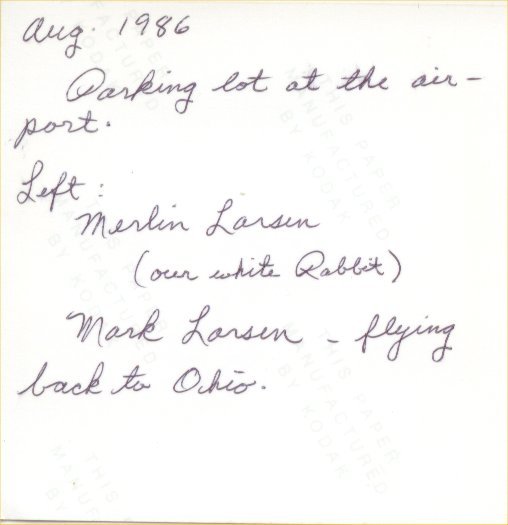 Aug. 1986
Parking lot at the air-
port.
Left:
Merlin Larsen
(our white Rabbit)
Mark Larsen - flying
back to Ohio.
THIS PAPER
MANUFACTURED
BY KODAK
THIS PAPER
MANUFACTURED
BY KODAK
THIS PAPER
MANUFACTURED
BY KODAK
THIS PAPER
MANUFACTURED
BY KODAK
THIS
MANUFACTURED
BY